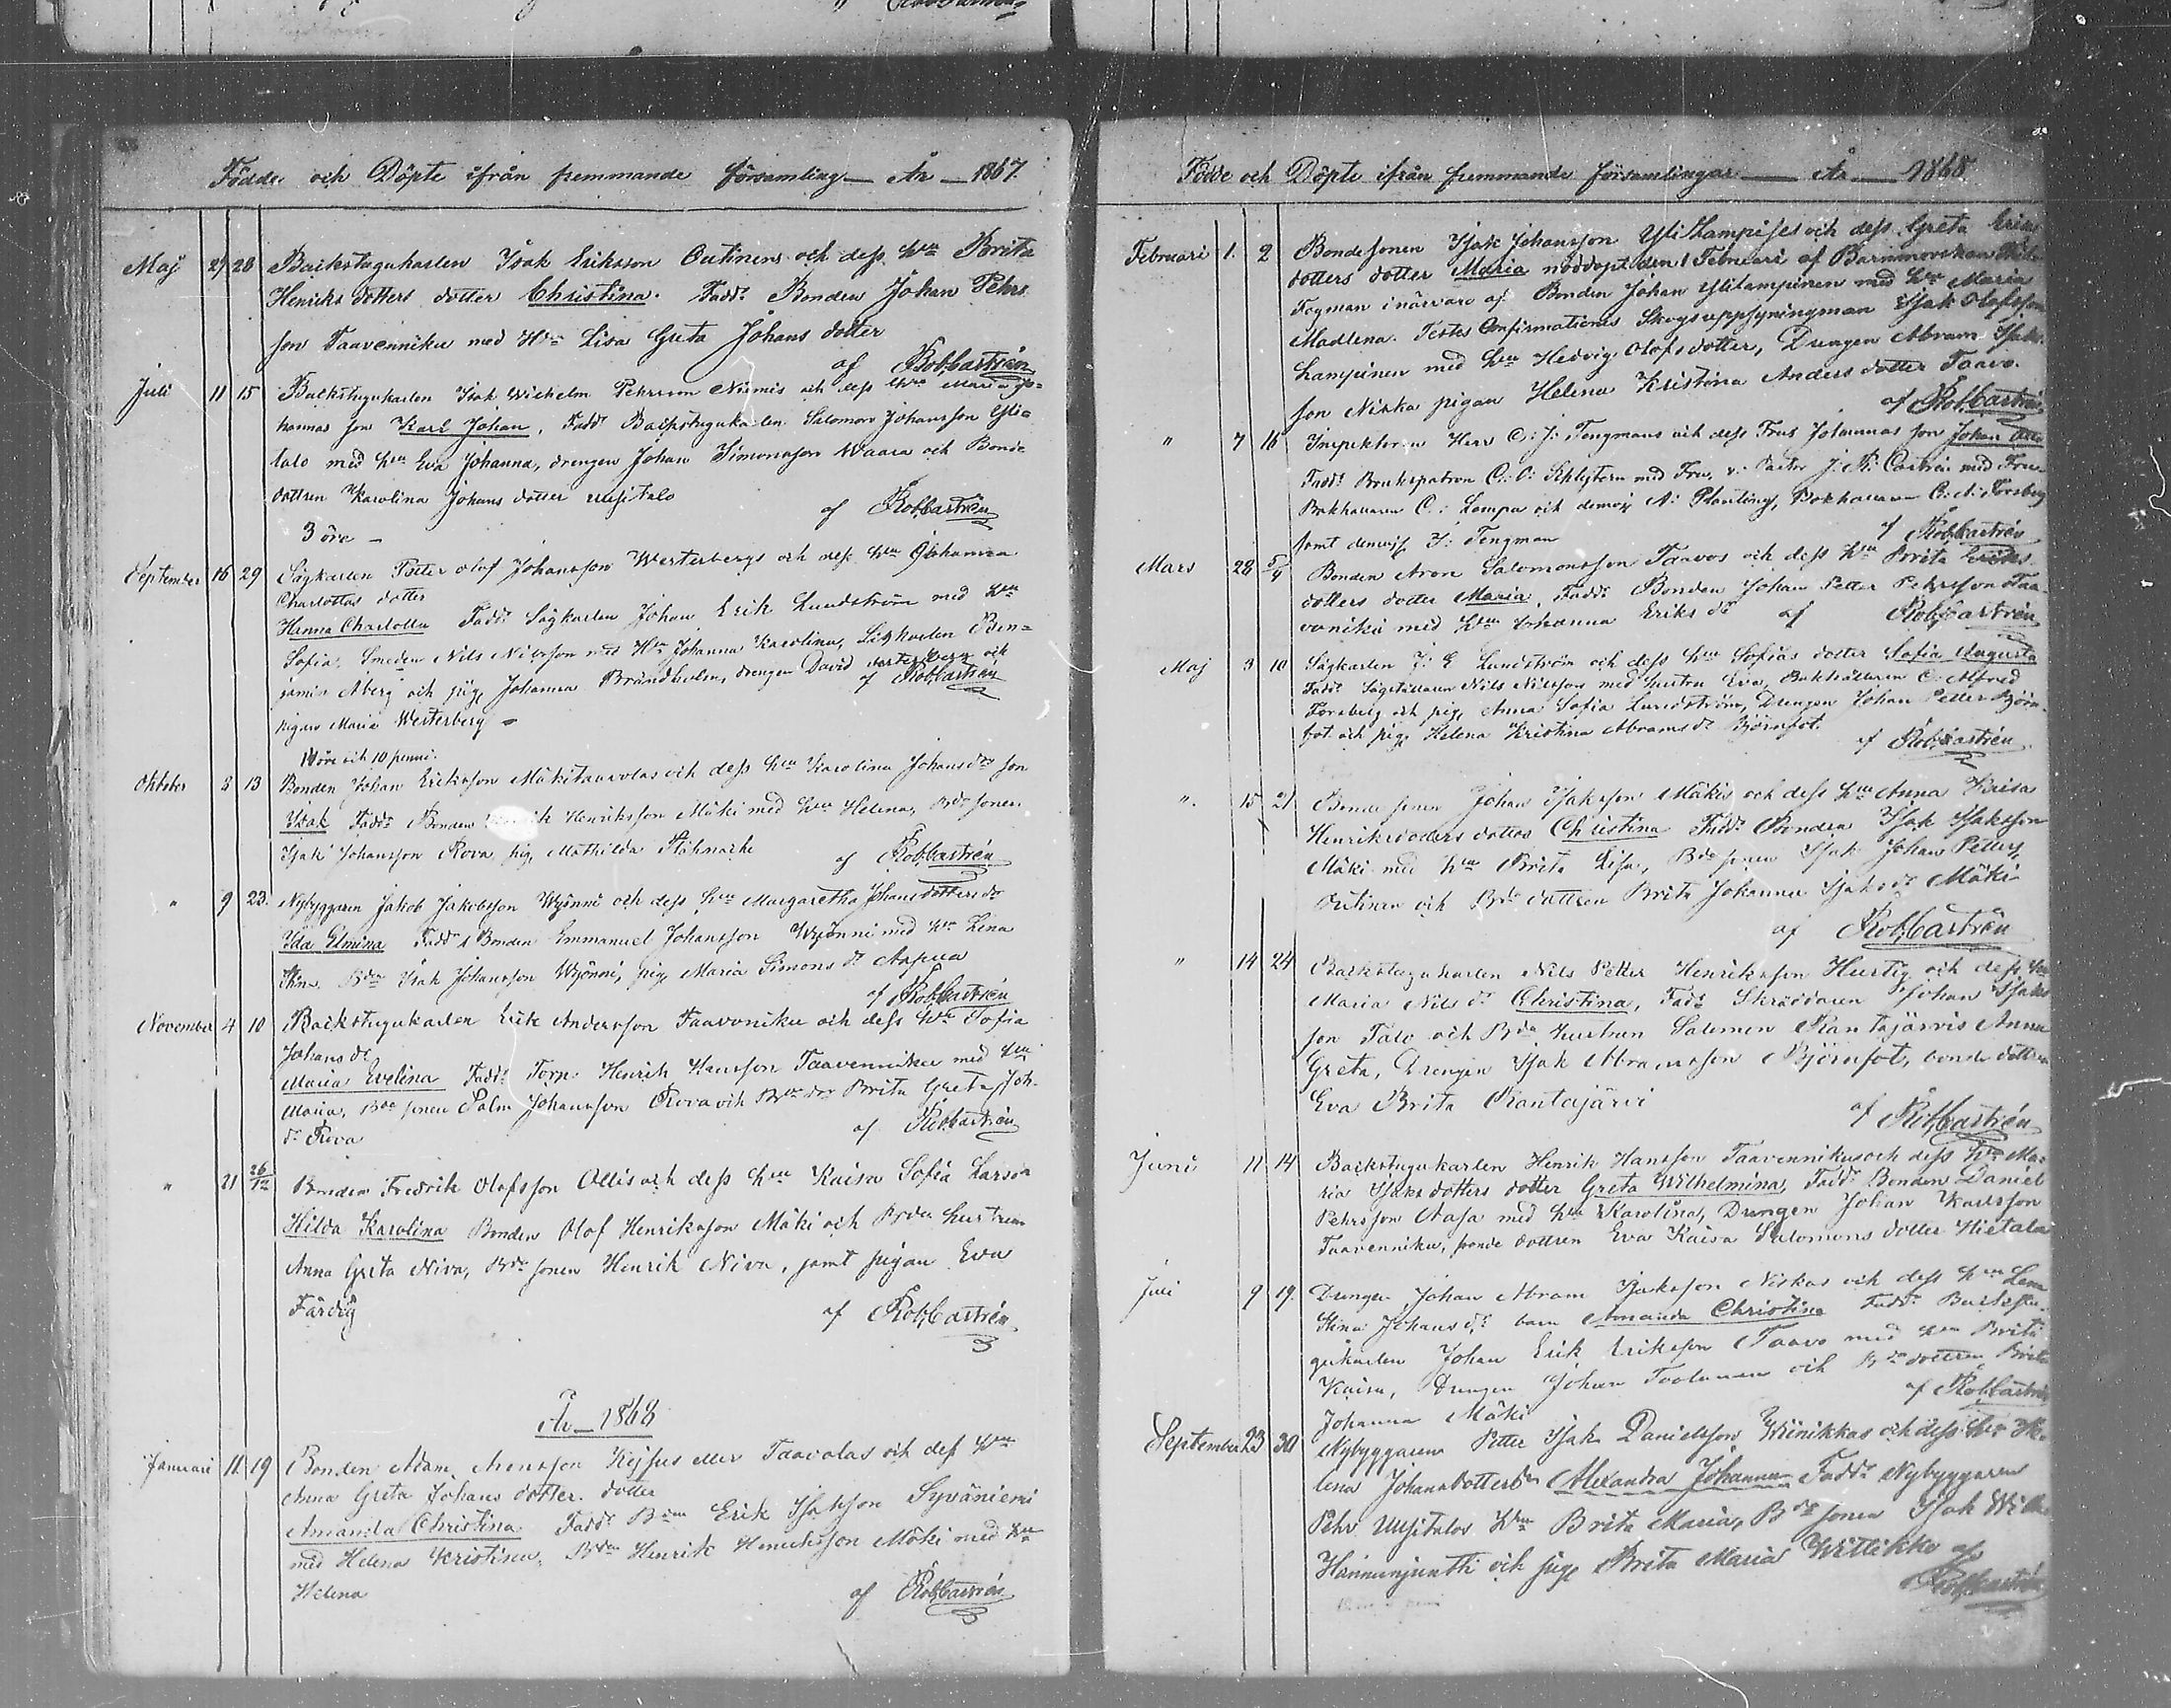 Födde och Döpte ifrån fremmande församling — År — 1867.
Maj 27 28 Backstugukarlen Isak Eriksson Outinens och dess Hu Brita
Henriks dotters dotter Christina. Fadd: Bonden Johan Pehrs
son Taavenniku med Hu Lisa Greta Johans dotter
af RobCastrén
Juli 11 15 Backstugukarlen Isak Wilhelm Pehrsson Niemis och dess Hu Maria Jo-
hannas son Karl Johan. Fadd: Backstugukarlen Salomon Johansson Yli-
talo med hu Eva Johanna, drengen Johan Simonsson Waara och Bonde
dottren Karolina Johans dotter Uusitalo
af RobCastrén
3 öre –
September 16 29 Sågkarlen Petter Olof Johansson Westerbergs och dess hu Johanna
Charlottas dotter
Hanna Charlotta Fadd: Sågkarlen Johan Erik Lundström med hu
Sofia, Smeden Nils Nilsson med Hu Johanna Karolina, Sågkarlen Ben=
jamin Åberg och pig. Johanna Brändholm, drengen David Westerberg och
af RobCastrén
pigan Maria Westerberg –
öre och 10 penni.
Oktober 8 13 Bonden Johan Eriksson Mäkitaavolas och dess hu Karolina Johansdrs son
Isak Fadd: Bonden Henriksson Mäki med hu Helena, Bde sonen
Isak Johansson Rova pig. Mathilda
af RobCastrén
" 9 23. Nybyggaren Jakob Jakobsson Wyönni och dess hu Margaretha Johansdotters dr
Ida Elmina Fadd: Bonden Emmanuel Johansson Wyönni med hu Lena
Stina. Bde Isak Johansson Wyönni, pig. Maria Simons dr Aapua
af RobCastrén
November 4 10 Backstugukarlen Erik Andersson Taavoniku och dess hu Sofia
Johans dr
Maria Evelina Fadd: Torp. Henrik Hansson Taavenniku med hu
Maria, Bde sonen Palm Johansson Rova och Bde dr Brita Greta Joh.
dr Rova
af RobCastrén
" 21 26/12 Bonden Fredrik Olofsson Ollis och dess hu Kaisa Sofia Larsdr
Hilda Karolina Bonden Olof Henriksson Mäki och Bde hustrun
Anna Greta Niva, Bde sonen Henrik Niva, samt pigan Eva
Färdig
af RobCastrén
År — 1868
Januari 11. 19 Bonden Adam Aronsson Kejsus eller Taavolas och dess hu
Anna Greta Johans dotter. dotter
Amanda Christina Fadd: Bden Erik Isaksson Syväniemi
med Helena Kristina, Bden Henrik Henriksson Mäki med hu
Helena
af RobCastrén
Födde och Döpte ifrån fremmande församlingar — År — 1868
Februari 1. 2 Bondesonen Isak Johansson Ylilampises och dess Greta Eriks
dotters dotter Maria nöddöpt den 1 Februari af Barnmorskan
Fogman i närvaro af Bonden Johan Ylilampinen med hu Maria
Madlena. Testes Confirmationis Skogsuppsyningman Isak Olofsson
Lampinen med hu Hedvig Olofsdotter, Drengen Abram Isaks
son Niska pigan Helena Kristina Anders dotter Taavo.
af RobCastrén
" 7 16 Inspektoren Herr C: J: Tengmans och dess Frus Johannas son Johan Otto
Fadd: Brukspatron C: O: med Fru, v: Pastor J: R: Castrén med Fru
Bokhållaren C: Lampa och demois. A: Planting, Bokhållaren C: A: Forsberg
samt demois. I: Tengman
af RobCastrén
Mars 28 5/4 Bonden Aron Salomonsson Taavos och dess hu Brita Eriks
dotters dotter Maria, Fadd: Bonden Johan Petter Pehrsson Taa-
voniku med hu Johanna Eriks dr af RobCastrén
Maj 3 10 Sågkarlen J: E Lundström och dess hu Sofias dotter Sofia Augusta
Fadd: Sågställaren Nils Nilsson med hustru Eva, Bokhållaren C: Alfred
Forsberg och pig. Anna Sofia Lundström, Drengen Johan Petter Björn-
fot och pig. Helena Kristina Abrams dr Björnfot.
af RobCastrén
". 15 21 Bonde sonen Johan Isaksson Mäkis och dess hu Anna Kaisa
Henriksdoters dotter Christina Fadd: Bonden Isak Isaksson
Mäki med hu Brita Lisa, Bde sonen Isak Johan Petters
Outinen och Bde dottren Brita Johanna Isaks dr Mäki
af RobCastrén
" 14 24 Backstugukarlen Nils Petter Henriksson Hurtig och dess hu
Maria Nils dr Christina, Fadd: Skräddaren Johan Isaks
son Talo och Bde hustrun Salomon Rantajärvis Anna
Greta, Drengen Isak Abramsson Björnfot, bonde dottren
Eva Brita Rantajärvi
af RobCastrén
Juni 11 14 Backstugukarlen Henrik Hansson Taavennikus och dess hu Ma-
ria Isaks dotters dotter Greta Wilhelmina, Fadd: Bonden Daniel
Pehrsson Aasa med hu Karolina, Drengen Johan Karlsson
Taavenniku, bonde dottren Eva Kaisa Salomons dotter Hietala
Juli 9 19. Drengen Johan Abram Isaksson Niskas och dess hu Lena
Stina Johans dr: barn Amanda Christina Fadd: Backstu-
gukarlen Johan Erik Eriksson Taavo med hu Brita
Kaisa, Drengen Johan Toolanen och Bde dottren Brita
Johanna Mäki
af RobCastrén
September 23 30 Nybyggaren Petter Isak Danielsson Wiinikkas och dess hu He-
lena Johansdotters dr Alexandra Johanna Fadd: Nybyggaren
Pehr Uusitalos Hu Brita Maria, Bde sonen Isak Wilh.
Hannunjuntti och pig. Brita Maria Wittikko af
RobCastrén